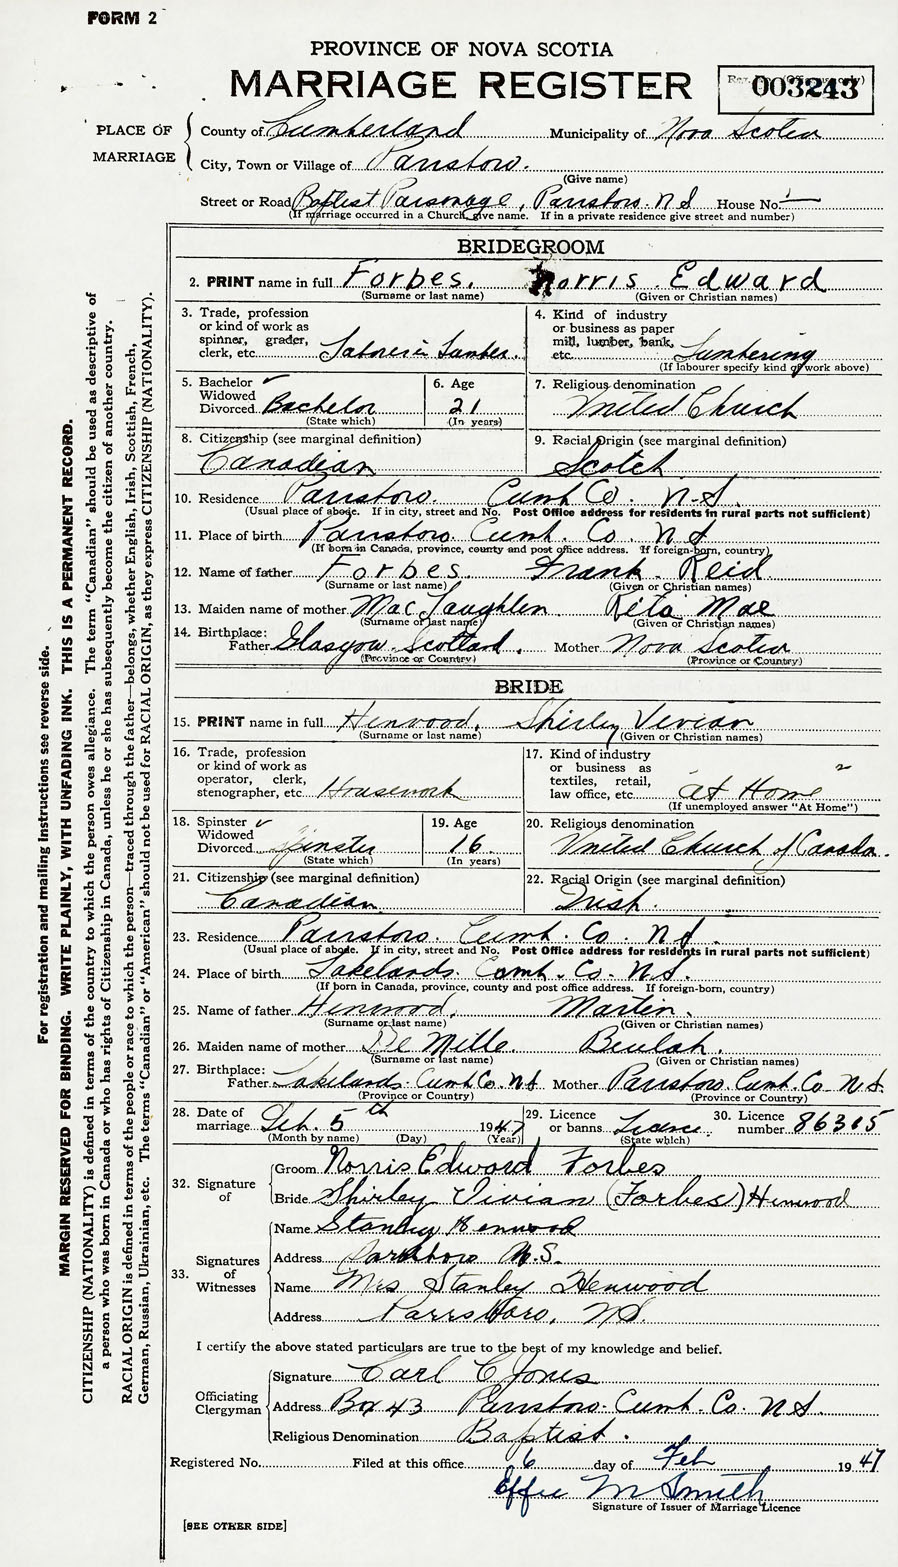 FORM 2
PROVINCE OF NOVA SCOTIA
MARRIAGE REGISTER
003243
PLACE OF MARRIAGE
County of Cumberland Municipality of Nova Scotia
City, Town or Village of Parrsboro.
(Give name)
Street or Road Baptist Parsonage, Parrsboro. N S House No. —
(If marriage occurred in a Church, give name. If in a private residence give street and number)
BRIDEGROOM
2. PRINT name in full Forbes. Norris Edward
(Surname or last name) (Given or Christian names)
3. Trade, profession or kind of work as spinner, grader, clerk, etc. Laborer in Lumber.
4. Kind of industry or business as paper mill, lumber, bank, etc. Lumbering
(If labourer specify kind of work above)
5. Bachelor ✓ Widowed Divorced Bachelor
(State which)
6. Age 21
(In years)
7. Religious denomination United Church
8. Citizenship (see marginal definition) Canadian
9. Racial Origin (see marginal definition) Scotch
10. Residence Parrsboro. Cumb Co. N.S.
(Usual place of abode. If in city, street and No. Post Office address for residents in rural parts not sufficient)
11. Place of birth Parrsboro. Cumb. Co. N S
(If born in Canada, province, county and post office address. If foreign-born, country)
12. Name of father Forbes. Frank Reid
(Surname or last name) (Given or Christian names)
13. Maiden name of mother MacLaughlen Rita Mae
(Surname or last name) (Given or Christian names)
14. Birthplace: Father Glasgow Scotland. Mother Nova Scotia
(Province or Country) (Province or Country)
BRIDE
15. PRINT name in full Henwood, Shirley Vivian
(Surname or last name) (Given or Christian names)
16. Trade, profession or kind of work as operator, clerk, stenographer, etc. Housework
17. Kind of industry or business as textiles, retail, law office, etc. at Home
(If unemployed answer "At Home")
18. Spinster ✓ Widowed Divorced Spinster
(State which)
19. Age 16
(In years)
20. Religious denomination United Church of Canada.
21. Citizenship (see marginal definition) Canadian
22. Racial Origin (see marginal definition) Irish.
23. Residence Parrsboro Cumb. Co. N S.
(Usual place of abode. If in city, street and No. Post Office address for residents in rural parts not sufficient)
24. Place of birth Lakelands. Cumb. Co. N S.
(If born in Canada, province, county and post office address. If foreign-born, country)
25. Name of father Henwood, Martin.
(Surname or last name) (Given or Christian names)
26. Maiden name of mother De Mille. Beulah.
(Surname or last name) (Given or Christian names)
27. Birthplace: Father Lakelands. Cumb Co. N S Mother Parrsboro. Cumb. Co N S.
(Province or Country) (Province or Country)
28. Date of marriage Feb. 5th 1947
(Month by name) (Day) (Year)
29. Licence or banns Licence.
(State which)
30. Licence number 86315
32. Signature of
Groom Norris Edward Forbes
Bride Shirley Vivian (Forbes) Henwood
33. Signatures of Witnesses
Name Stanley Henwood
Address Parrsboro N.S.
Name Mrs Stanley Henwood
Address Parrsboro, N.S.
I certify the above stated particulars are true to the best of my knowledge and belief.
Officiating Clergyman
Signature Carl C Jones
Address Box 43 Parrsboro. Cumb. Co. N S.
Religious Denomination Baptist.
Registered No. Filed at this office 6 day of Feb 1947
Effie M Smith
Signature of Issuer of Marriage Licence
[SEE OTHER SIDE]
For registration and mailing instructions see reverse side.
MARGIN RESERVED FOR BINDING. WRITE PLAINLY, WITH UNFADING INK. THIS IS A PERMANENT RECORD.
CITIZENSHIP (NATIONALITY) is defined in terms of the country to which the person owes allegiance. The term "Canadian" should be used as descriptive of
a person who was born in Canada or who has rights of Citizenship in Canada, unless he or she has subsequently become the citizen of another country.
RACIAL ORIGIN is defined in terms of the people or race to which the person—traced through the father—belongs, whether English, Irish, Scottish, French,
German, Russian, Ukrainian, etc. The terms "Canadian" or "American" should not be used for RACIAL ORIGIN, as they express CITIZENSHIP (NATIONALITY).